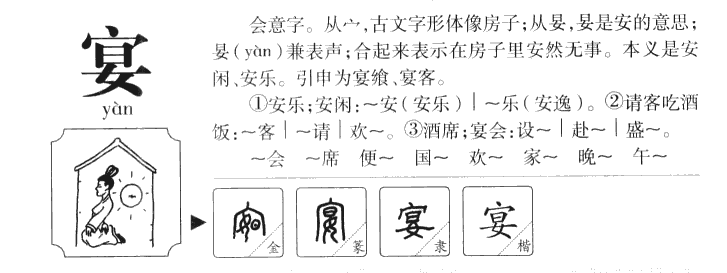 宴
yàn
会意字。从宀,古文字形体像房子;从妟,妟是安的意思;
妟(yàn)兼表声;合起来表示在房子里安然无事。本义是安
闲、安乐。引申为宴飨、宴客。
①安乐;安闲:～安(安乐)｜～乐(安逸)。②请客吃酒
饭:～客｜～请｜欢～。③酒席;宴会:设～｜赴～｜盛～。
～会 ～席 便～ 国～ 欢～ 家～ 晚～ 午～
宴 金 宴 篆 宴 隶 宴 楷